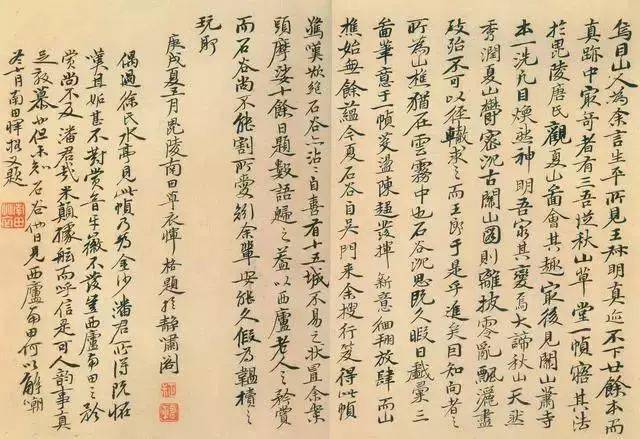 烏目山人為余言生平所見王叔明真迹不下廿餘本而
真跡中最奇者有三吾從秋山草堂一幀寤其法
於毘陵唐氏觀夏山圖會其趣最後見關山蕭寺
本一洗凡目煥然神明吾窮其變焉大諦秋山天然
秀潤夏山鬱密沉古關山圖則離披零亂飄灑盡
致殆不可以徑轍求之而王郎于是乎進矣因知向者之
所為山樵猶在雲霧中也石谷沉思既久暇日戲彙三
圖筆意于一幀芟盪陳趨發揮新意徊翔放肆而山
樵始無餘蘊今夏石谷自吳門來余搜行笈得此幀
驚嘆欲絕石谷亦沾沾自喜有十五城不易之狀置余案
頭摩娑十餘日題數語歸之蓋以西廬老人之矜賞
而石谷尚不能割所愛矧余輩安能久假為韞櫝之
玩耶
庚戌夏五月毘陵南田草衣惲格題於靜嘯閣
偶過徐氏水亭見此幀乃為金沙潘君所得既怪
嘆且妬甚不對賞音牙徽不發豈西廬南田之矜
賞尚不及潘君哉米顛據舷而呼信是可人韻事真
足效慕也但未知石谷他日見西廬南田何以解嘲
冬十月南田惲格又題